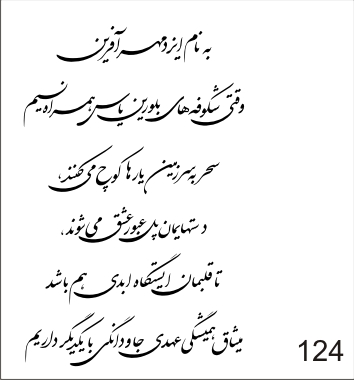 به نام ایزد مهرآفرین
وقتی شکوفه‌های بلورین یاس همراه نسیم
سحر به سرزمین یارها کوچ می‌کنند،
دستهایمان پل عبور عشق می‌شوند،
تا قلبمان ایستگاه ابدی هم باشد
میثاق همیشگی عهدی جاودانگی با یکدیگر داریم
124